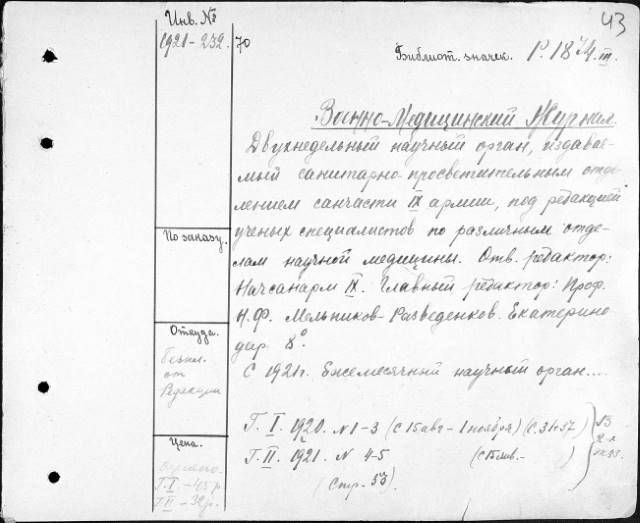 43
Инв. №
1921-232. 70
Библиот. значек. Р. 18 III.
Военно-Медицинский Журнал.
Двухнедельный научный орган, издавае-
мый санитарно-просветительным отде-
лением санчасти IX армии, под редакцией
ученых специалистов по различным отде-
лам научной медицины. Отв. редактор:
Начсанарм IX. Главный редактор: Проф.
Н.Ф. Мельников-Разведенков. Екатерино
дар 8°.
С 1921г. Ежемесячный научный орган....
Г. I. 1920. N 1-3 (с 15 авг. - 1 ноября)
Г. II. 1921. N 4-5
(Стр. 53)
По заказу.
Откуда.
Безпл.
от
Редакции
Цена.
Г. I - 
Г. II -